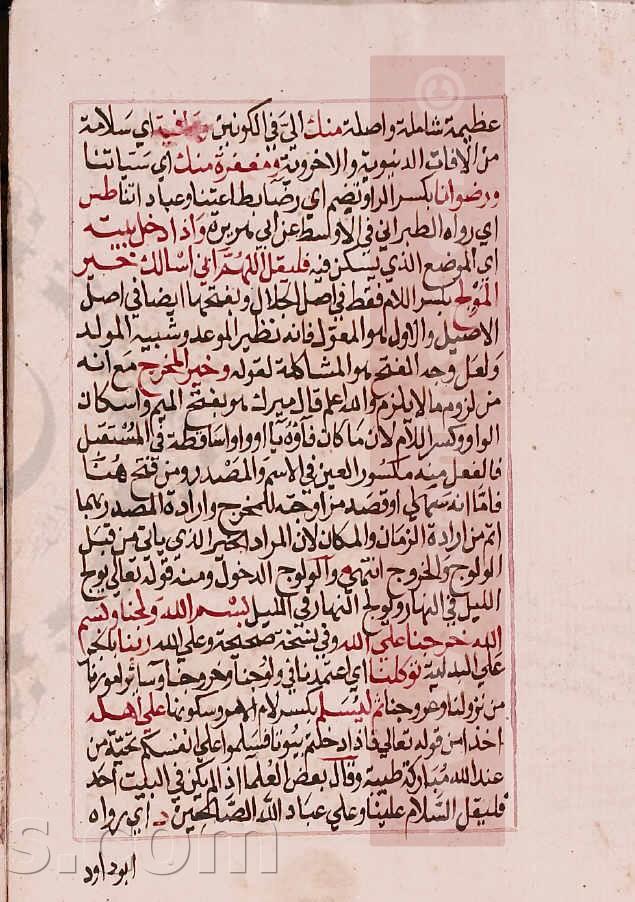 عظيمة شاملة واصلة منك الي في الكونين وعافية اي سلامة
من الافات الدنيوية والاخروية ومغفرة منك اي سياتنا
ورضوانا بكسر الراو تضم اي رضا بطاعتنا وعباداتنا طس
اي رواه الطبراني في الاوسط عن ابي هريرة واذا دخل بيته
اي الموضع الذي يسكن فيه فليقل اللهم اني اسالك خير
المولج بكسر اللام فقط في اصل الجلال وبفتحها ايضا في اصل
الاصيل والاول هو المعول فانه نظير الموعد وشبيه المولد
ولعل وجه الفتح هو المشاكلة لقوله وخير المخرج مع انه
من لزوم مالا يلزم والله اعلم قال ميرك هو بفتح الميم واسكان
الواو وكسر اللام لان ما كان فاؤه يا او واوا ساقطة في المستقبل
فالفعل منه مكسور العين في الاسم والمصدر ومن فتح هنا
فاما انه سها او قصد مزاوجته للمخرج وارادة المصدر بهما
اتم من ارادة الزمان والمكان لان المراد الخير الذي ياتي من قبل
الولوج والخروج انتهي والولوج الدخول ومنه قوله تعالي يولج
الليل في النهار ويولج النهار في الليل بسم الله ولجنا وبسم
الله خرجنا علي الله وفي نسخة صحيحة وعلي الله ربنا بالجر
علي البدلية توكلنا اي اعتمدنا في ولوجنا وخروجنا وسائر امورنا
من نزولنا وعروجنا ثم ليسلم بكسر لام الامر وسكونها علي اهله
اخذا من قوله تعالي فاذا دخلتم بيوتا فسلموا علي انفسكم تحية من
عند الله مباركة طيبة وقال بعض العلما اذا لم يكن في البيت احد
فليقل السلام علينا وعلي عباد الله الصالحين د اي رواه
ابو داود
s.com